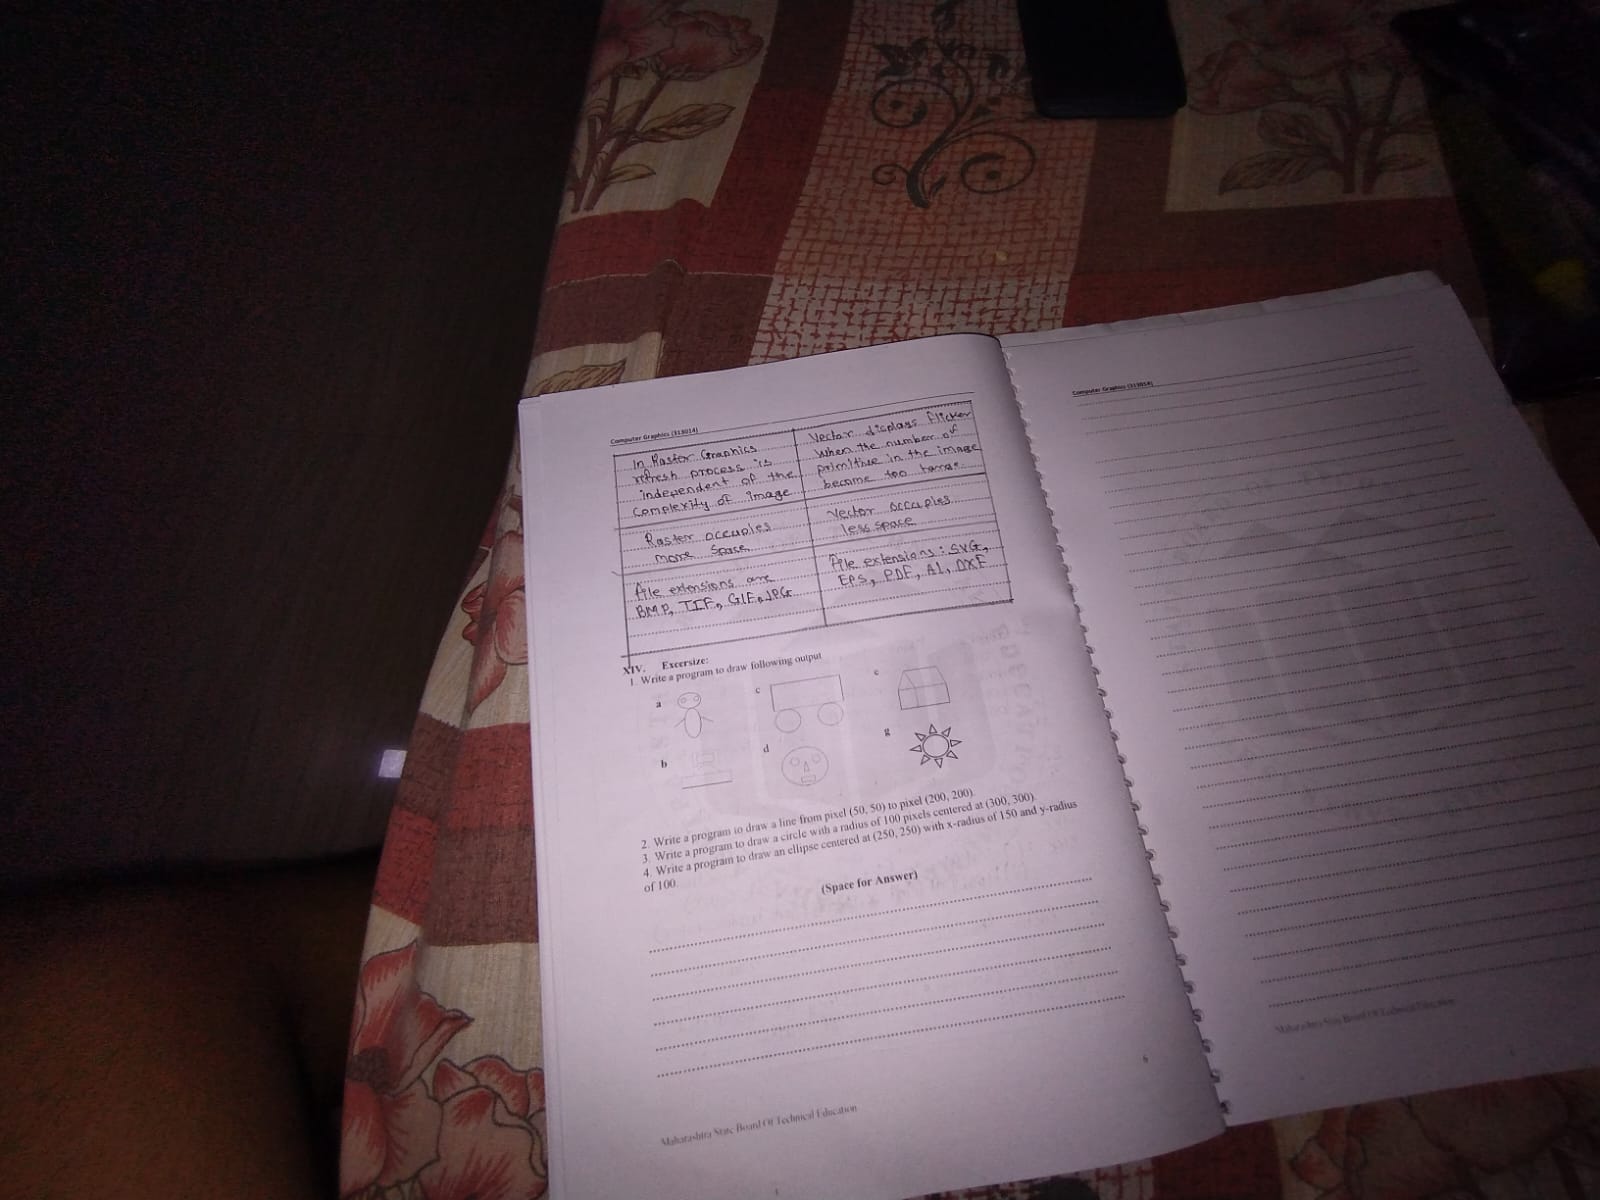 Computer Graphics (313014)
In Raster Graphics
refresh process is
independent of the
complexity of image
Vector displays flicker
when the number of
primitive in the image
become too
Raster occupies
more space
Vector occupies
less space
File extensions are
BMP, TIF, GIF, JPG
File extensions: SVG,
EPS, PDF, AI, DXF
XIV. Excersize:
1. Write a program to draw following output
a
c
e
b
d
g
2. Write a program to draw a line from pixel (50, 50) to pixel (200, 200).
3. Write a program to draw a circle with a radius of 100 pixels centered at (300, 300).
4. Write a program to draw an ellipse centered at (250, 250) with x-radius of 150 and y-radius
of 100.
(Space for Answer)
6
Maharashtra State Board Of Technical Education
Computer Graphics (313014)
Maharashtra State Board Of Technical Education